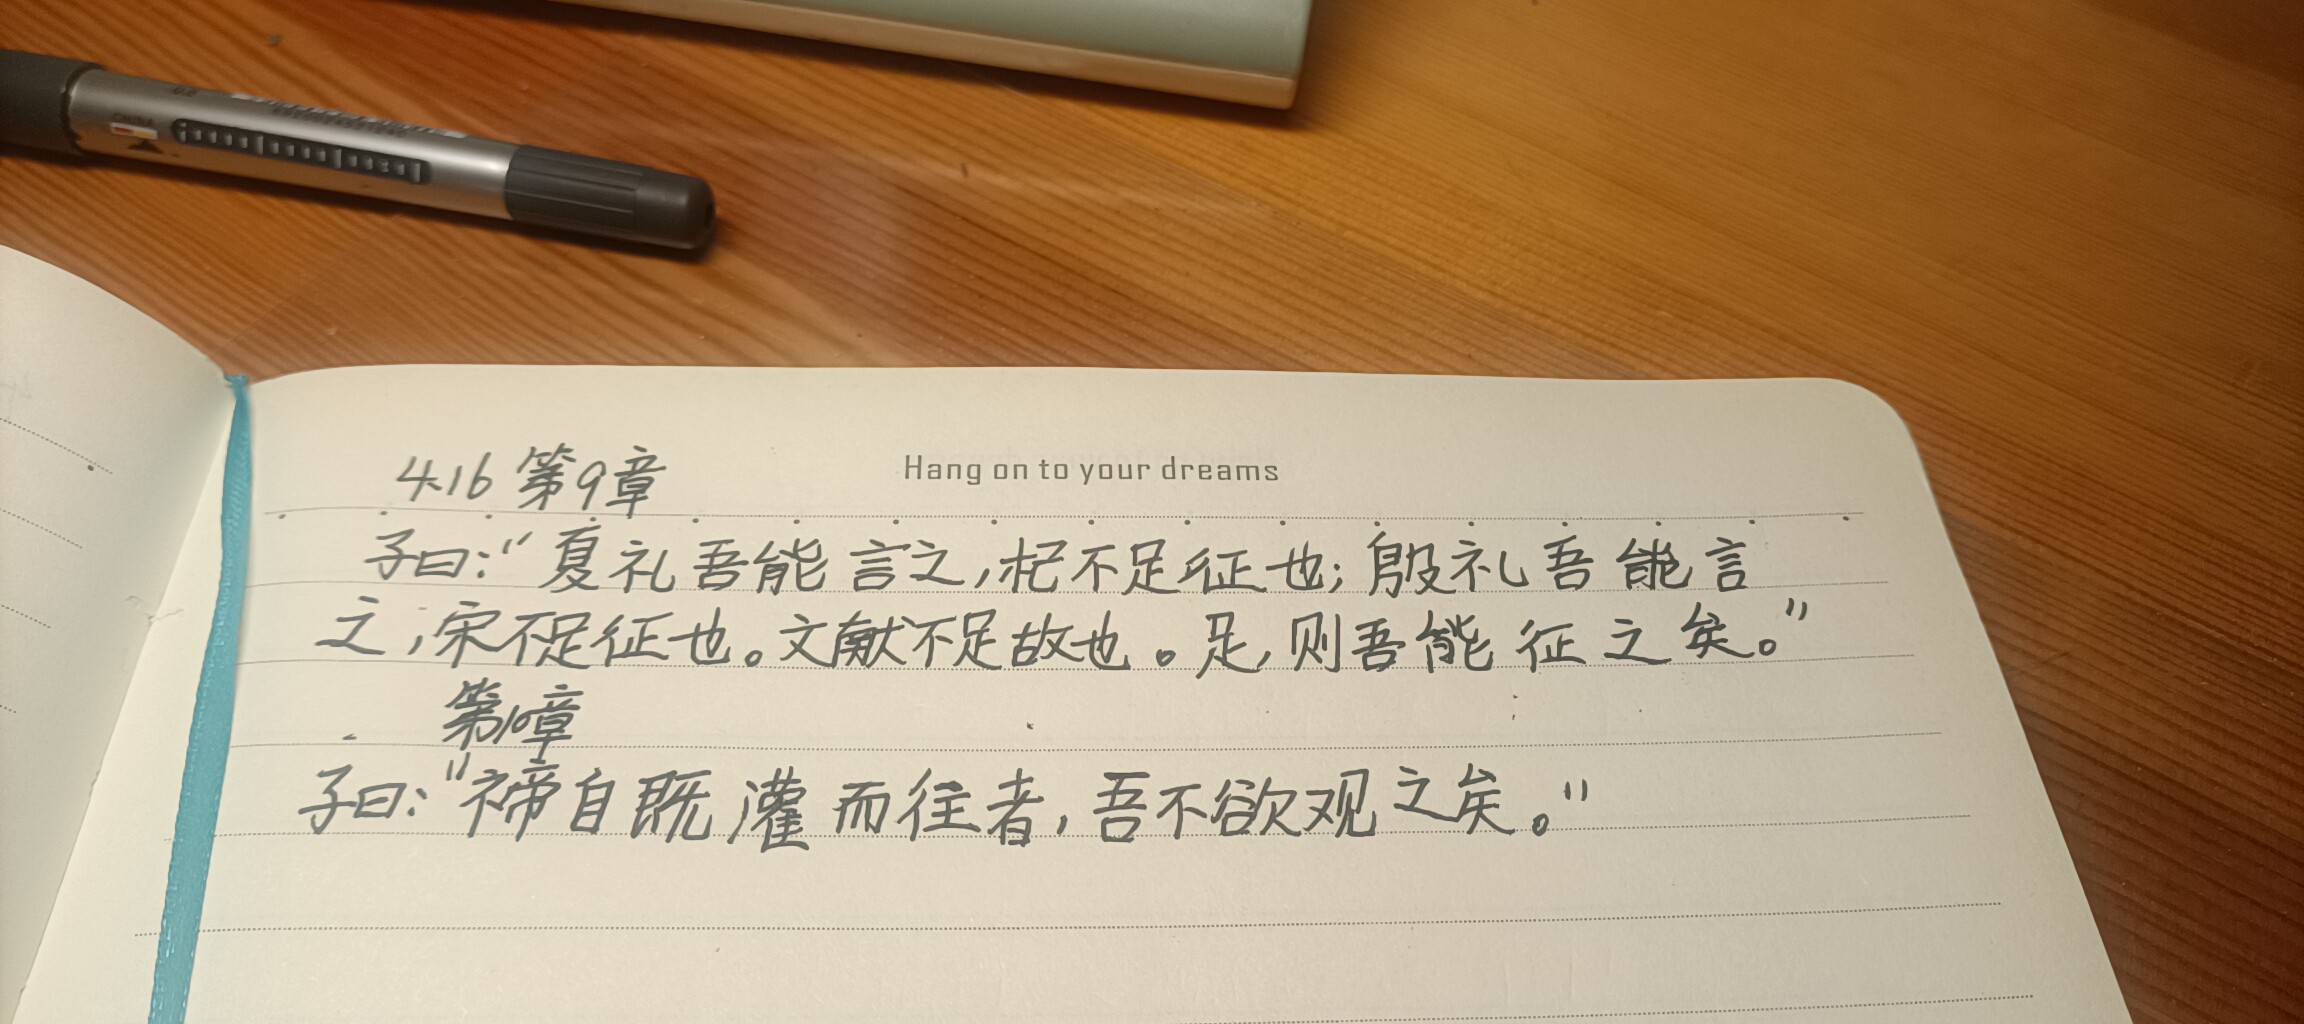 Hang on to your dreams
4.16 第9章
子曰:“夏礼吾能言之,杞不足征也;殷礼吾能言
之,宋不足征也。文献不足故也。足,则吾能征之矣。”
第10章
子曰:“禘自既灌而往者,吾不欲观之矣。”
CHINA